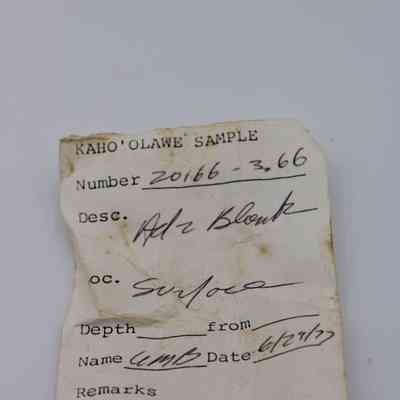 KAHO'OLAWE SAMPLE
Number 20166 - 3.66
Desc. Adz Blank
oc. Surface
Depth from
Name Date 6/29/77
Remarks